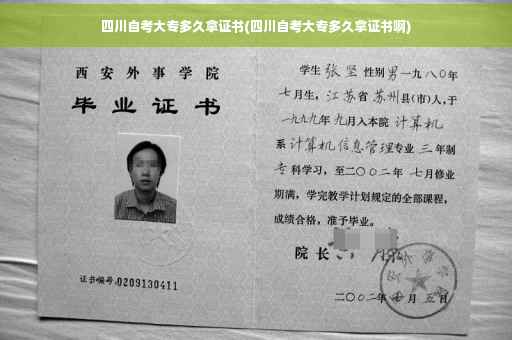 四川自考大专多久拿证书(四川自考大专多久拿证书啊)
西安外事学院
毕业证书
证书编号:0209130411
学生 张坚 性别 男 一九八〇年
七月生，江苏省 苏州县(市)人，于
一九九九年 九月入本院 计算机
系 计算机信息管理专业 三年制
专科学习，至二〇〇二年 七月修业
期满，学完教学计划规定的全部课程，
成绩合格，准予毕业。
院长
二〇〇二年 月 五日